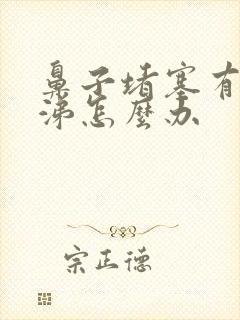 鼻子堵塞有
涕怎麼办
宗正德